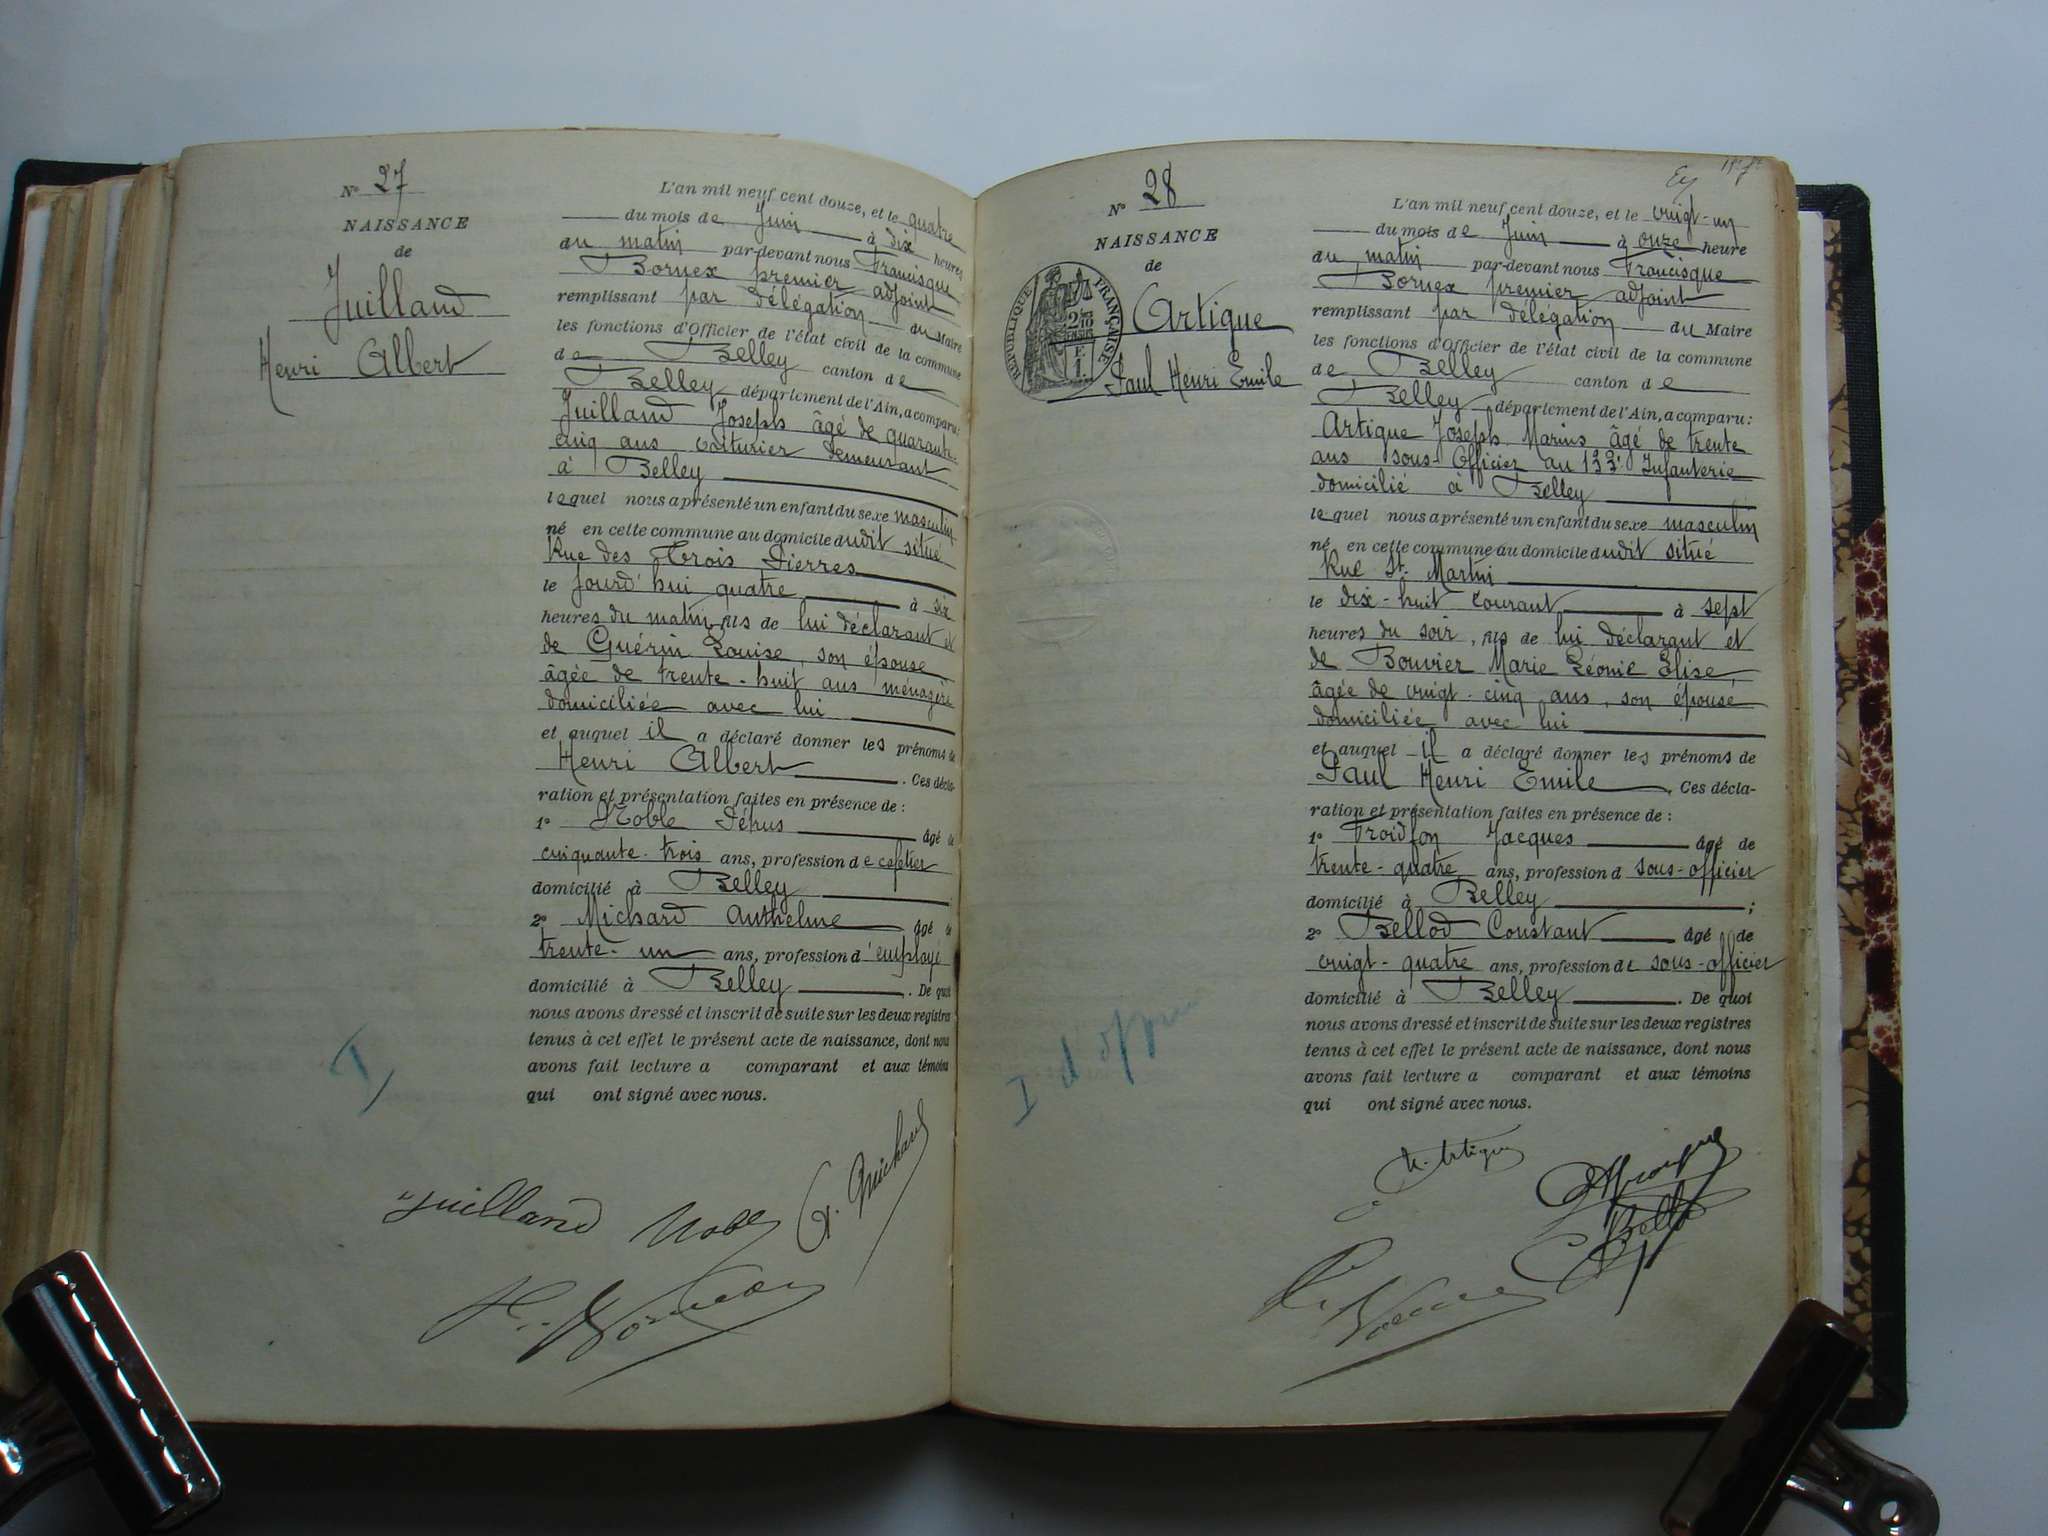 N° 27
NAISSANCE
de
Juilland
Henri Albert
L'an mil neuf cent douze, et le quatre
du mois de Juin à dix heures
du matin par-devant nous Francisque
Bornex premier adjoint
remplissant par délégation du Maire
les fonctions d'Officier de l'état civil de la commune
de Belley canton de
Belley département de l'Ain, a comparu:
Juilland Joseph âgé de quarante-
cinq ans voiturier demeurant
à Belley
lequel nous a présenté un enfant du sexe masculin
né en cette commune au domicile dudit situé
Rue des Trois Pierres
le jourd'hui quatre à six
heures du matin, fils de lui déclarant et
de Guérin Louise, son épouse
âgée de trente-huit ans ménagère
domiciliée avec lui
et auquel il a déclaré donner les prénoms de
Henri Albert. Ces décla-
ration et présentation faites en présence de :
1° Noble âgé de
cinquante-trois ans, profession de cafetier
domicilié à Belley
2° Michard Anthelme âgé de
trente-un ans, profession d'employé
domicilié à Belley. De quoi
nous avons dressé et inscrit de suite sur les deux registres
tenus à cet effet le présent acte de naissance, dont nous
avons fait lecture a comparant et aux témoins
qui ont signé avec nous.
Juilland Noble
N° 28
NAISSANCE
de
RÉPUBLIQUE FRANÇAISE
Artique
Paul Henri Emile
L'an mil neuf cent douze, et le vingt-un
du mois de Juin à onze heure
du matin par-devant nous Francisque
Bornex premier adjoint
remplissant par délégation du Maire
les fonctions d'Officier de l'état civil de la commune
de Belley canton de
Belley département de l'Ain, a comparu:
Artique Joseph Marius âgé de trente
ans sous-Officier au 133e Infanterie
domicilié à Belley
lequel nous a présenté un enfant du sexe masculin
né en cette commune au domicile dudit situé
Rue St. Martin
le dix-huit courant à sept
heures du soir, fils de lui déclarant et
de Bouvier Marie Léonie Elise,
âgée de vingt-cinq ans, son épouse
domiciliée avec lui
et auquel il a déclaré donner les prénoms de
Paul Henri Emile. Ces décla-
ration et présentation faites en présence de :
1° Jacques âgé de
trente-quatre ans, profession d sous-officier
domicilié à Belley ;
2° Bellod Constant âgé de
vingt-quatre ans, profession de sous-officier
domicilié à Belley. De quoi
nous avons dressé et inscrit de suite sur les deux registres
tenus à cet effet le présent acte de naissance, dont nous
avons fait lecture a comparant et aux témoins
qui ont signé avec nous.